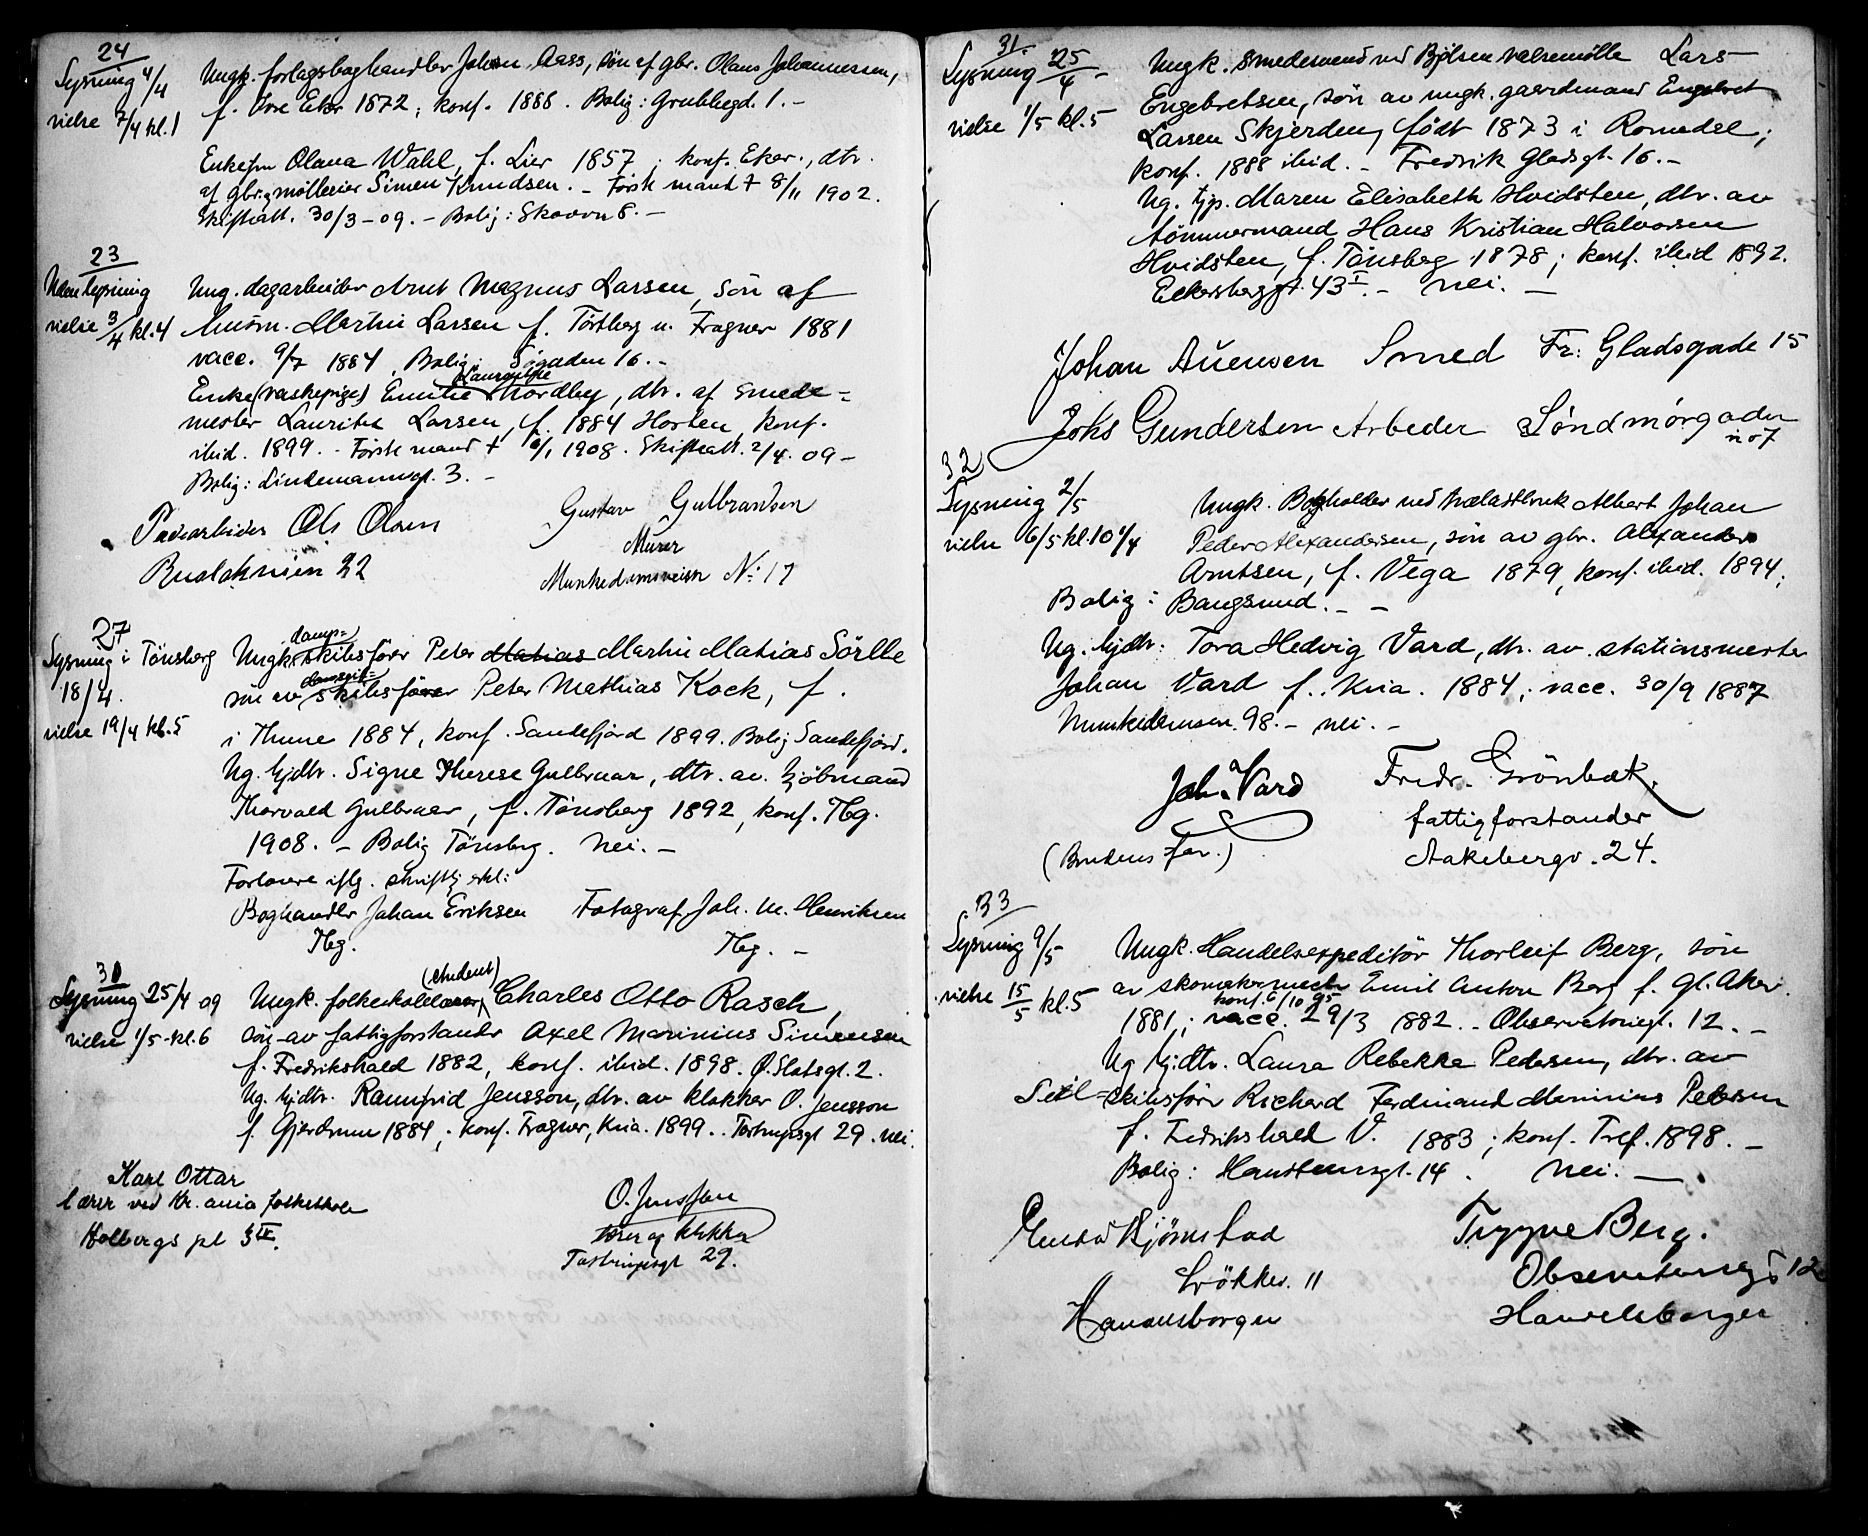 24
Lysning 4/4
vielse 7/4 kl.1
Ungk. forlagsboghandler Johan Aass, søn af gbr. Olaus Johannessen,
f. Övre Eker 1872; konf. 1888. Bolig: Grubbegd. 1. -
Enkefru Olava Wahl, f. Lier 1857; konf. Eker., dtr.
af gbr. og mölleier Simen Knudsen. - Förste mand † 8/11 1902.
Skifteatt. 30/3-09. - Bolig: Skovvn 8. -
23
Uden Lysning
vielse 3/4 kl.4
Ung. dagarbeider Arnt Magnus Larsen, sön af
husm. Martin Larsen f. Törtberg u. Frogner 1881
vacc. 9/7 1884. Bolig: Søgaden 16. -
Enke (vaskepige) Emilie Nordby, dtr. af smede=
mester Lauritz Larsen, f. 1884 Horten, konf.
ibid. 1899. - Förste mand † /1 1908. Skifteatt. 2/4. 09 -
Bolig: Lindemannsgt. 3. -
Ole Olsen
22
Gustav Gulbrandsen
Murer
Munkedamsveien No: 17
27
Lysning i Tönsberg
18/4.
vielse 19/4 kl. 5
damp=
Ungk. skibsförer Peter Matias Martin Matias Sörlle
sön av skibsförer Peter Mathias Kock, f.
i Thune 1884, konf. Sandefjord 1899. Bolig Sandefjord.
Ug. hjdtr. Signe Therese Gulbraar, dtr. av. kjöbmand
Thorvald Gulbraar, f. Tönsberg 1892, konf. Tbg.
1908. - Bolig Tönsberg. Nei. -
Forlovere iflg. skriftlig erkl:
Boghandler Johan Eriksen Fotograf Joh. M. Henriksen
Tbg. Tbg. -
30
Lysning 25/4 09
vielse 1/5 - kl. 6
(student)
Ungk. folkeskolelærer, Charles Otto Rasch,
sön av fattigforstander Axel Marinius Simensen
f. Fredrikshald 1882, konf. ibid. 1898. Ø. Slotsgt. 2.
Ug. hjdtr. Rannfrid Jensson, dtr. av klokker O. Jensson
f. Gjerdrum 1884; konf. Frogner, Kria. 1899. . Tostrupsgt 29. nei.
Karl Ottar
lærer ved Kr.ania folkeskole
Holbergs pl 3 IV.
O. Jensson
lærer og klokker
Tostrupsgt 29.
31.
Lysning 25/4 -
vielse 1/5 kl. 5
Ungk. smedesvend ved Bjölsen valsemölle Lars
Engebretsen, sön av ungk. gaardmand Engebret
Larsen Skjerden, födt 1873 i Romedal;
konf. 1888 ibid. - Fredrik Gladsgt. 16. -
Ug. tjp. Maren Elisabeth Hvidsten, dtr. av
tömmermand Hans Kristian Halvorsen
Hvidsten, f. Tönsberg 1878; konf. ibid 1892.
Eckersberggt. 43 I. - Nei. -
Johan Auensen Smed Fr: Gladsgade 15
Johs Gundersen Arbeder Söndmörgaden
no 7
32
Lysning 2/5
vielse 6/5 kl. 10 1/4
Ungk. Bogholder ved trælastbruk Albert Johan
Peder Alexandersen, sön av gbr. Alexander
Arntsen, f. Vega 1879, konf. ibid. 1894;
Bolig: Bangsund. - -
Ug. hjdtr: Tora Hedvig Vard, dtr. av. stationsmester
Johan Vard f. Kria. 1884; vacc. 30/9 1887
Munkedamsvn. 98. - nei. -
Joh. Vard Fredr. Grönbæk.
(Brudens far.) fattigforstander
Aakebergv. 24.
33
Lysning 9/5
vielse 15/5 kl. 5
Ungk. Handelsexpeditör Thorleif Berg, sön
av skomakermester Emil Anton Berg f. Gl. Aker
konf. 6/10 95
1881; vacc. 29/3 1882. - Observatoriegt. 12. -
Ug hj.dtr. Laura Rebekka Pedersen, dtr. av
Seil=skibsförer Richard Ferdinand Marinius Pedersen
f. Fredrikshald V. 1883; konf. Tref. 1898. -
Bolig: Hansteensgt. 14. Nei. -
Bjömstad
Lökkev. 11
Trygve Berg.
Observatoriegt 12
Handelsborger